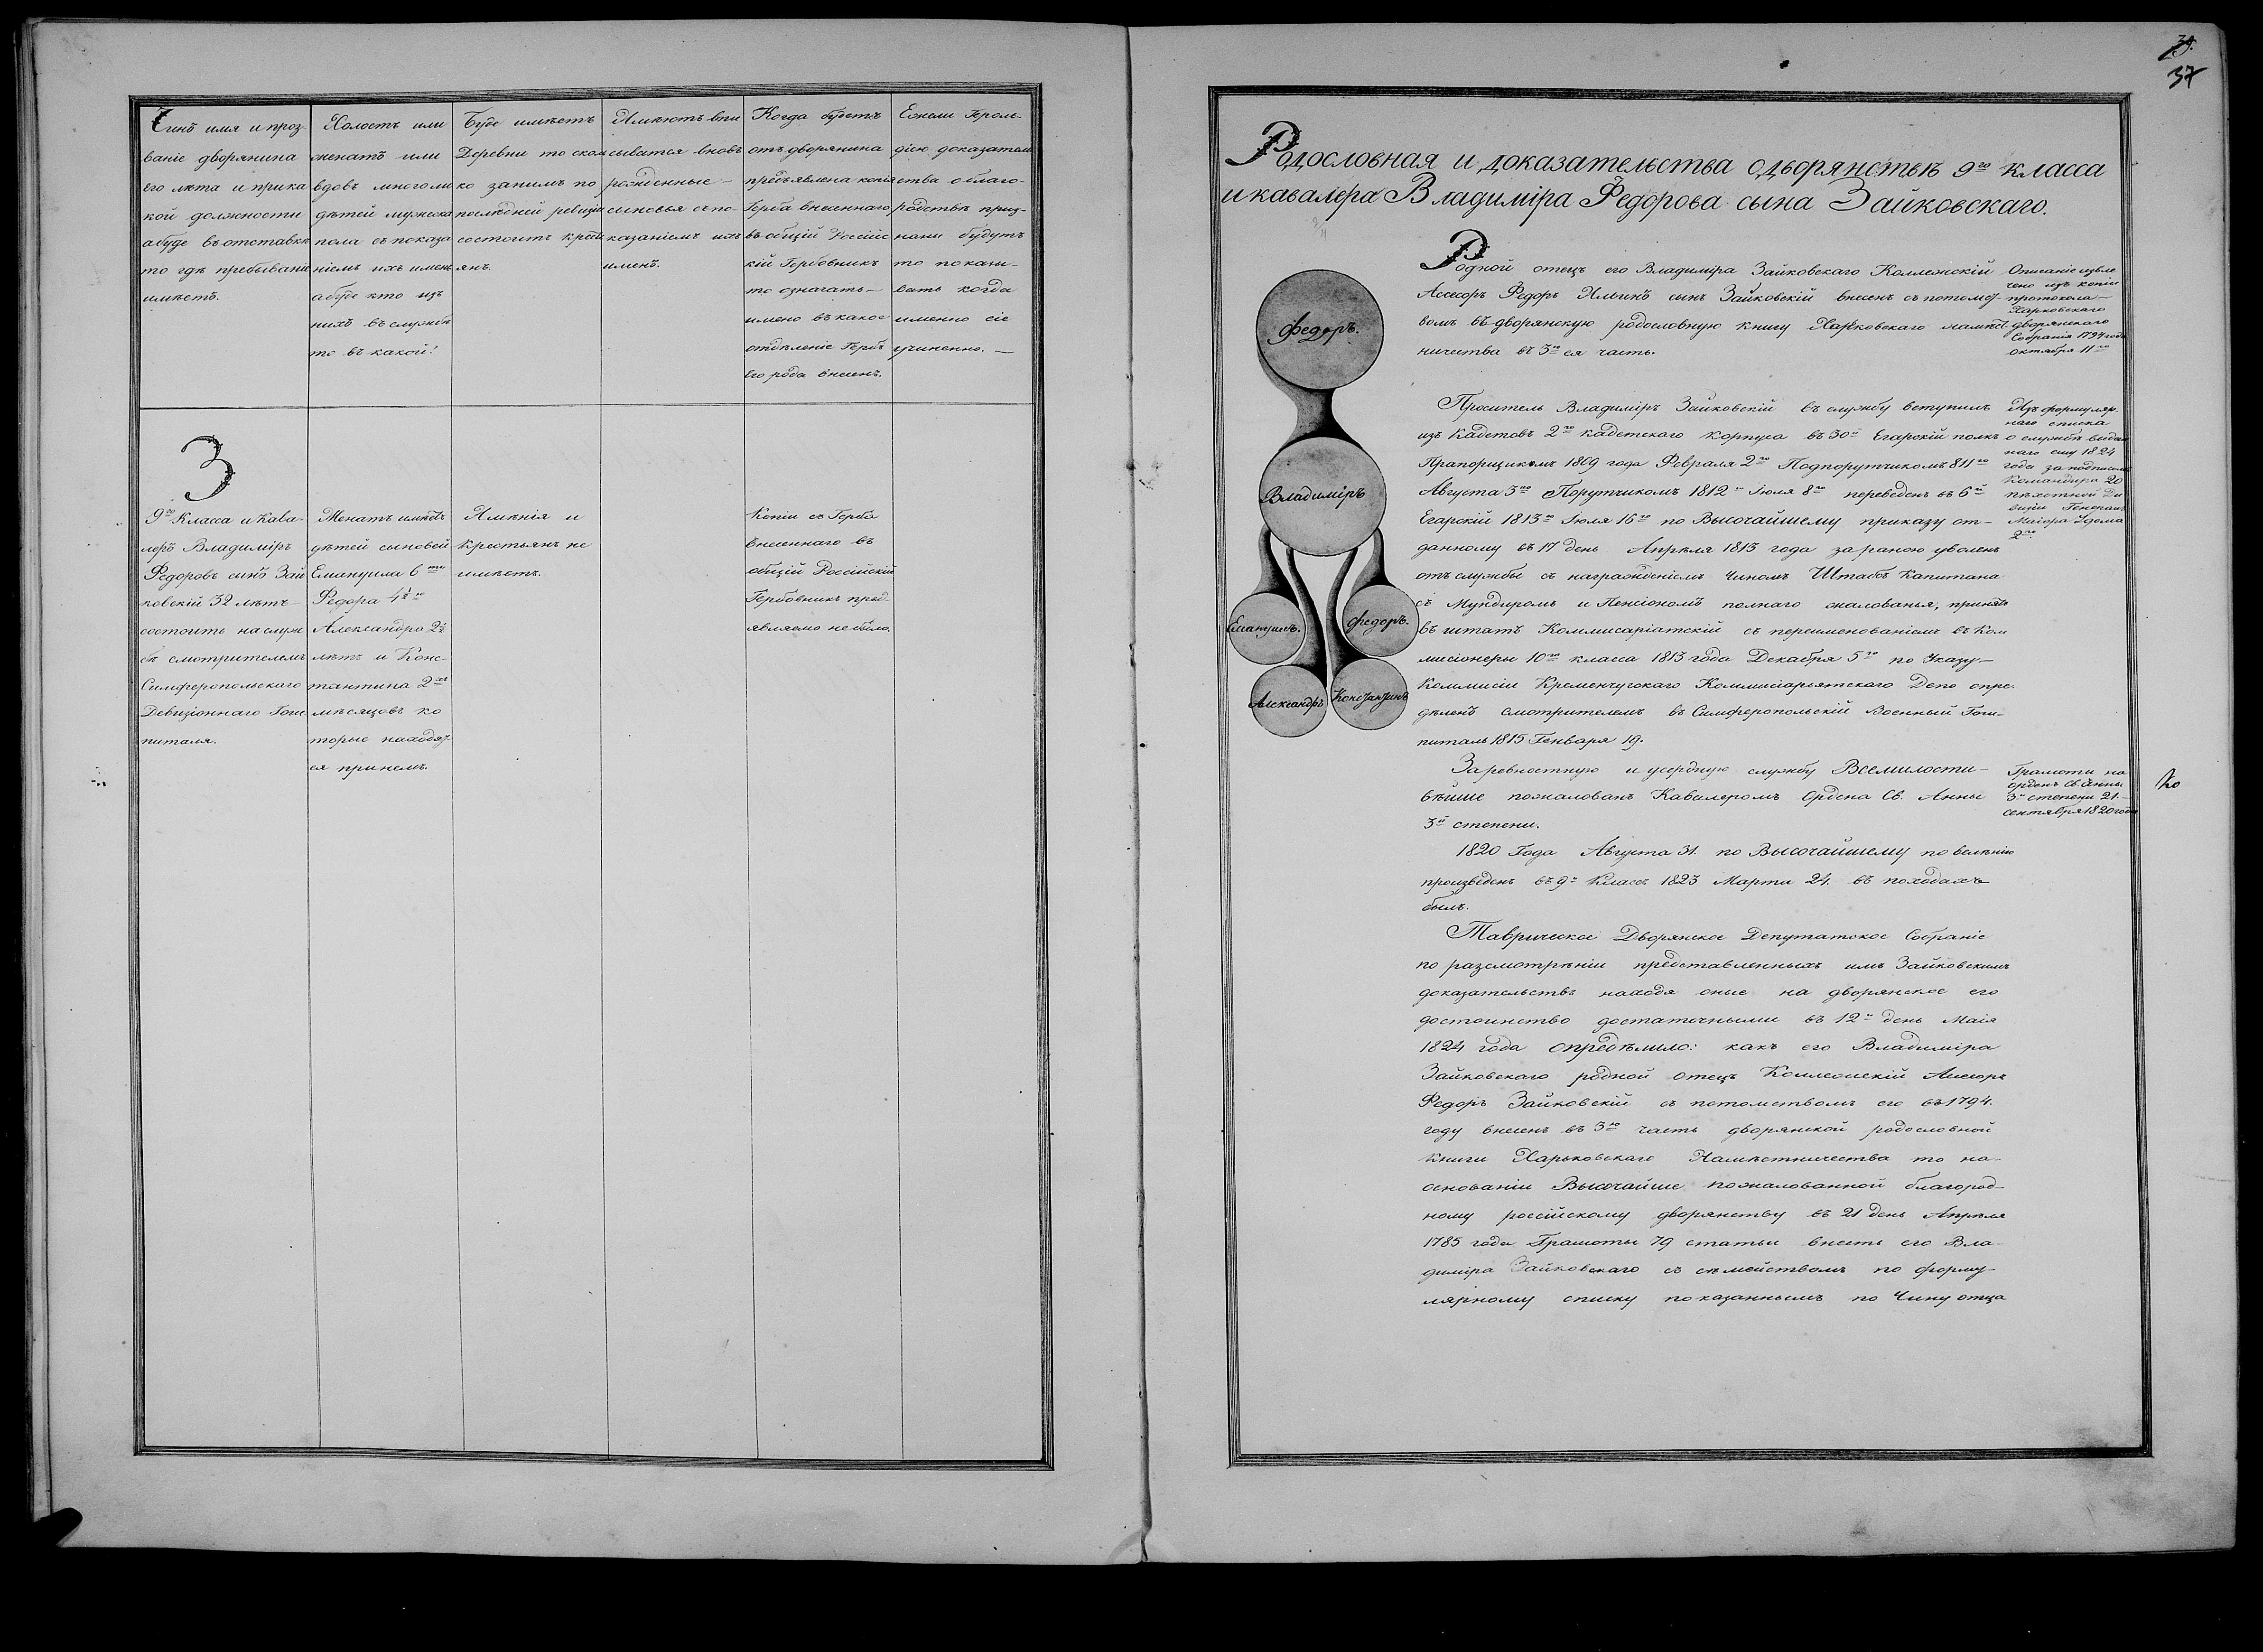 Чинъ имя и проз-
ваніе дворянина
его лѣта и при ка
кой должности
а буде въ отставкѣ
то гдѣ пребываніе
имѣетъ.
Холостъ или
женатъ или
вдовъ много ли
дѣтей мужеска
пола съ показа
ніемъ ихъ именъ
а буде кто изъ
нихъ въ службѣ
то въ какой?
Буде имѣетъ
Деревни то скол
ко за нимъ по
последней ревизіи
состоитъ крестъ
янъ.
Имѣютъ впи
сыватся вновь
рожденные –
сыновья съ по-
казаніемъ ихъ
именъ.
Когда будетъ
отъ дворянина
предъявлена копія
Герба внесеннаго
въ общій Россійс
кій Гербовникъ
то означать –
имено въ какое
отдѣленіе Гербъ
Его рода внесенъ.
Ежели Героль-
діею доказатель
ства о благо-
родствѣ приз-
наны будутъ
то показы-
вать когда
именно сіе
учиненно. –
З
9го Класса и Кава-
леръ Владиміръ
Федоровъ сынъ Зай
ковскій 32 лѣтъ –
состоитъ на служ
бѣ смотрителемъ
Симферопольскаго
Девизіоннаго Гош
питаля.
Женатъ имѣетъ
дѣтей сыновей
Емануила 6ти
Федора 4½го
Александра 2½
лѣтъ и Конс-
тантина 2хъ
мѣсяцовъ ко
торые находят
ся при немъ.
Имѣнія и
крестьянъ не
имѣетъ.
Копіи съ Герба
Внесеннаго въ
общій Россійскій
Гербовникъ предъ
являемо не было.
39.
37
Родословная и доказательства о дворянствѣ 9го класса
и кавалера Владиміра Федорова сына Зайковскаго.
Федоръ.
Владиміръ
Емануилъ.
Федоръ.
Александръ
Константинъ
Родной отецъ его Владиміра Зайковскаго Коллежскій
Ассесоръ Федоръ Ильинъ сынъ Зайковскій внесенъ съ потомст-
вомъ въ дворянскую родословную книгу Харьковскаго намѣст
ничества въ 3ю ея часть.
Описаніе извле
чено изъ копіи
протокола –
Харьковскаго
дворянскаго
Собранія 1794 года
октября 11го
Проситель Владиміръ Зайковскій въ службу вступилъ
изъ Кадетовъ 2го кадетскаго корпуса въ 30й Егарскій полкъ
Прапорщикомъ 1809 года Февраля 2го Подпорутчикомъ 811го
Августа 3го Порутчикомъ 1812го Іюля 8го переведенъ въ 6й
Егарскій 1813го Іюля 16го по Высочайшему приказу от-
данному въ 17 день Апрѣля 1813 года за раною уволенъ
отъ службы съ награжденіемъ чиномъ Штабсъ Капитана
съ Мундиромъ и Пенсіономъ полнаго жалованья, принятъ
въ штатъ Коммисаріатскій съ переименованіемъ въ Ком
мисіонеры 10го класса 1813 года Декабря 5го по Указу –
Коммисіи Кременчугскаго Коммисіарьятскаго Депо опре
дѣленъ смотрителемъ въ Симферопольскій Военный Гош-
питаль 1815 Генваря 19.
Изъ формуляр-
наго списка
о службѣ выдан
наго ему 1824
года за подписомъ
Командира 20
пѣхотной Ди
визіи Генерал
Маіора Удома
2го
За ревностную и усердную службу Всемилости-
вѣйше пожалованъ Кавалеромъ Ордена Св. Анны
3й степени.
Грамоты на
орденъ Св. Анны
3й степени 21. –
сентября 1820 года
1820 Года Августа 31. по Высочайшему повелѣнію
произведенъ въ 9й Классъ 1823 Марти 24. въ походахъ
былъ.
Таврическое Дворянское Депутатское Собраніе
по разсмотрѣніи представленныхъ имъ Зайковскимъ
доказательствъ находя оные на дворянское его
достоинство достаточными въ 12й день Маія
1824 года опредѣлило: какъ его Владиміра
Зайковскаго родной отецъ Коллежскій Ассесоръ
Федоръ Зайковскій съ потомствомъ его въ 1794.
году внесенъ въ 3ю часть дворянской родословной
книги Харьковскаго Намѣстничества то на-
основаніи Высочайше пожалованной благород-
ному россійскому дворянству въ 21 день Апрѣля
1785 года Грамоты 79 статьи внесть его Вла-
диміра Зайковскаго съ сѣмействомъ по форму-
лярному списку показаннымъ по Чину отца